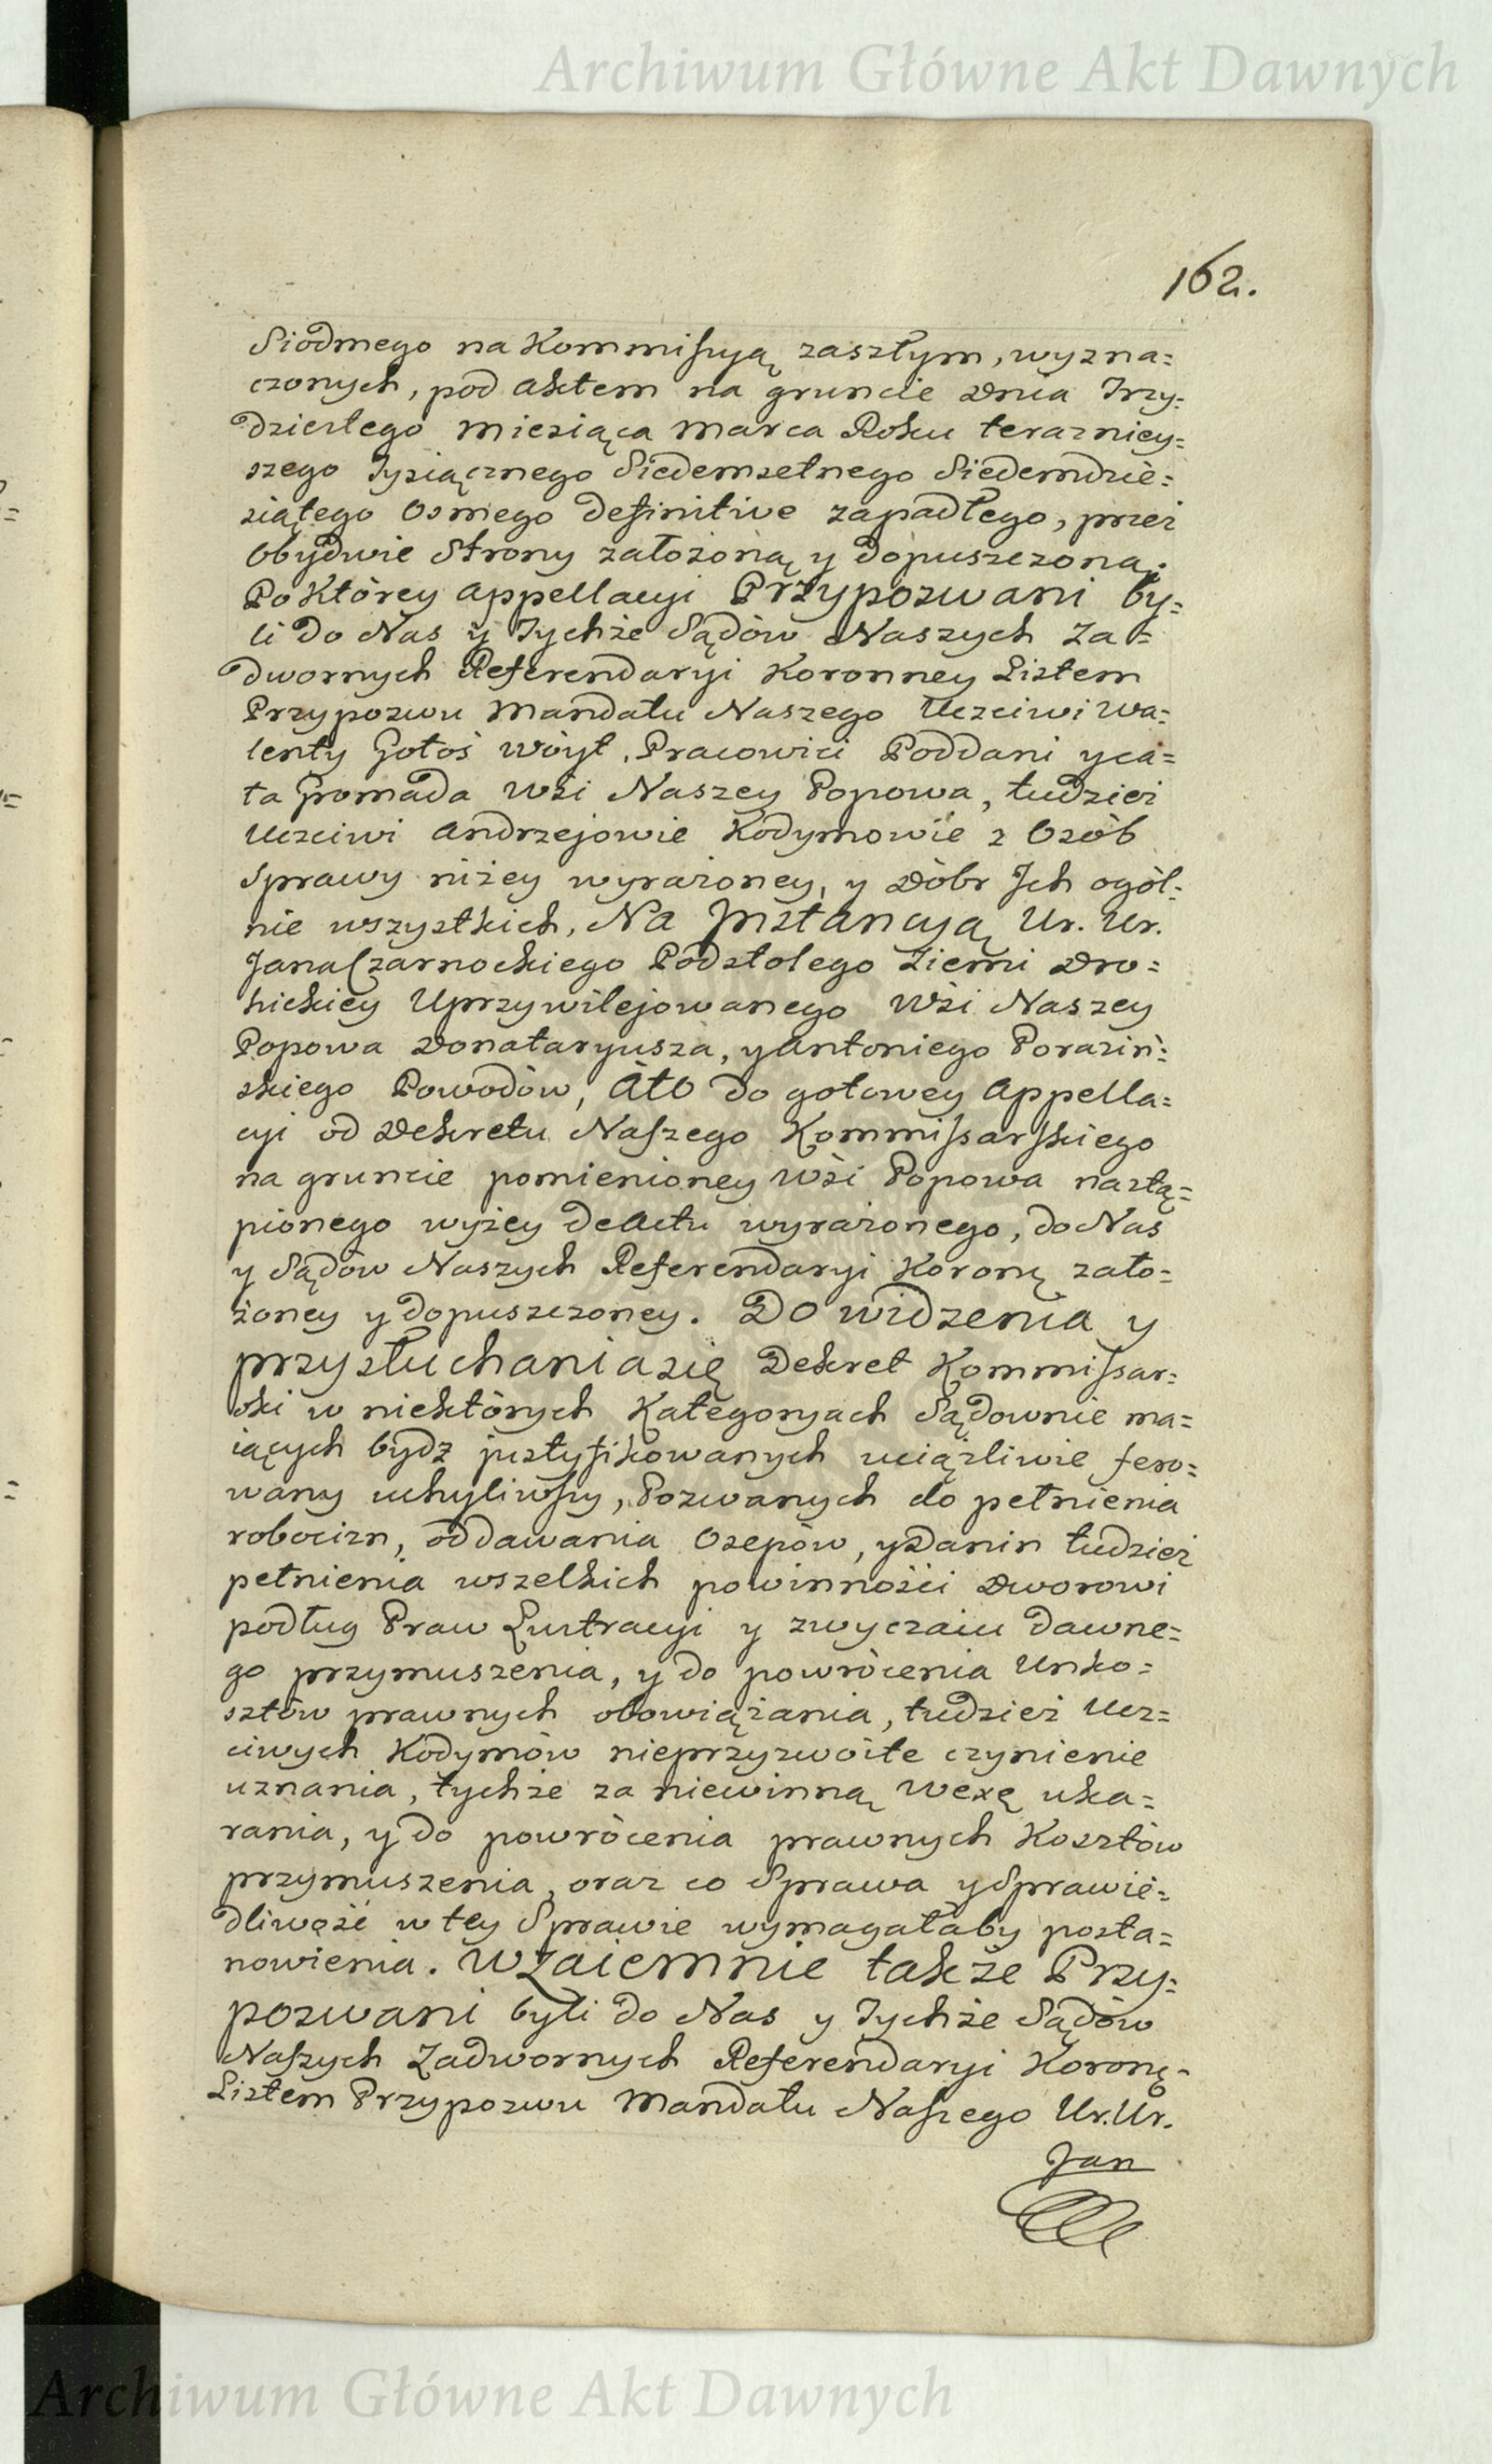 Archiwum Główne Akt Dawnych
162.
Siodmego na Kommissyią zaszłym, wyzna=
czonych, pod Aktem na gruncie Dnia Trzy=
dziestego Miesiąca Marca Roku terazniey=
szego Tysiącznego Siedemsetnego Siedemdzie=
siątego Osmego definitive zapadłego, przez
Obydwie Strony założoną y dopuszczoną.
Po Którey Appellacyi Przypozwani by=
li do Nas y Tychże Sądów Naszych Za=
dwornych Referendaryi Koronney Listem
Przypozwu Mandatu Naszego Uczciwi Wa=
lenty Gołoś Wóyt, Pracowici Poddani y ca=
ła Gromada Wsi Naszey Popowa, tudzież
Uczciwi Andrzejowie Kodymowie z Osób
Sprawy niżey wyrażoney, y Dóbr Ich ogól=
nie wszystkich, Na Instancyą Ur. Ur.
Jana Czarnockiego Podstolego Ziemi Dro=
hickiey Uprzywilejowanego Wsi Naszey
Popowa Donataryusza, y Antoniego Poraziń=
skiego Powodów, Ato do gotowey Appella=
cyi od Dekretu Naszego Kommissarskiego
na gruncie pomienioney Wsi Popowa nastą=
pionego wyżey de Actu wyrażonego, do Nas
y Sądów Naszych Referendaryi Koronę zało=
żoney y dopuszczoney. Do widzenia y
przysłuchania się Dekret Kommissar=
ski w niektórych Kategoryach Sądownie ma=
iących bydz justyfikowanych uciążliwie fero=
wany uchyliwszy, Pozwanych do pełnienia
robocizn, oddawania Osepów, y Danin tudzież
pełnienia wszelkich powinności Dworowi
podług Praw Lustracyi y zwyczaiu dawne=
go przymuszenia, y do powrócenia Unko=
sztów prawnych obowiązania, tudzież Ucz=
ciwych Kodymów nieprzyzwoite czynienie
uznania, tychże za niewinną Wexę uka=
rania, y do powrócenia prawnych Kosztów
przymuszenia, oraz co Sprawa y Sprawie=
dliwość w tey Sprawie wymagałaby posta=
nowienia. Wzaiemnie także Przy=
pozwani byli do Nas y Tychże Sądów
Naszych Zadwornych Referendaryi Koronę=
Listem Przypozwu Mandatu Naszego Ur. Ur.
Jan
Archiwum Główne Akt Dawnych